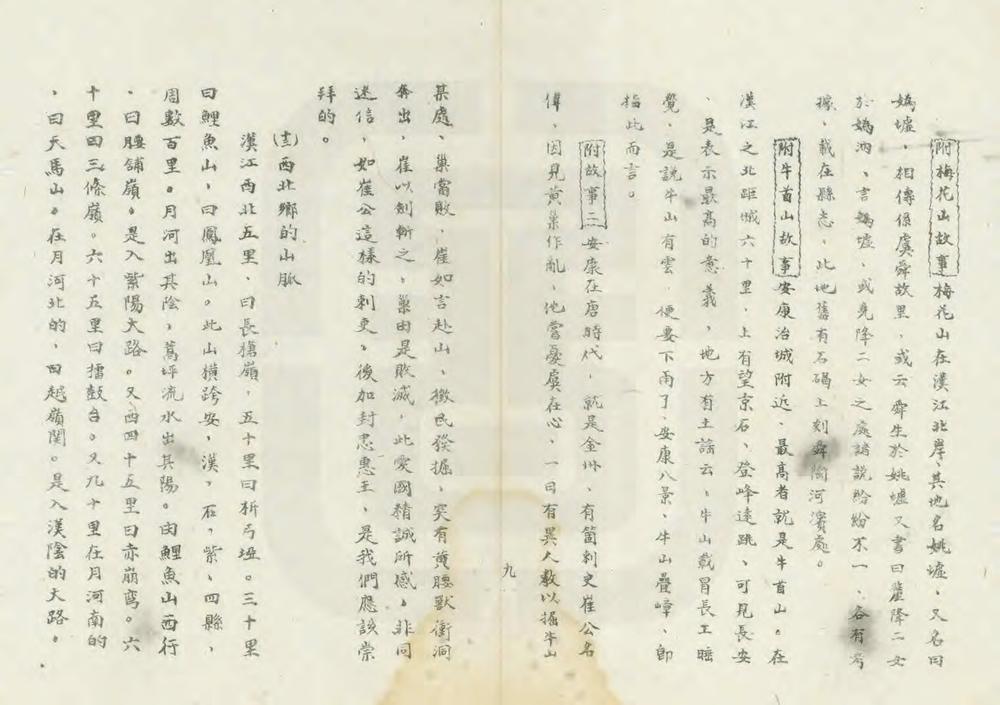 附梅花山故事 梅花山在漢江北岸、其地名姚墟、又名曰
媯墟、相傳係虞舜故里、或云舜生於姚墟又書曰釐降二女
於媯汭、言媯墟、或堯降二女之處諸說紛紛不一、各有考
據、載在縣志、此地舊有石碣上刻舜陶河濱處。
附牛首山故事 安康治城附近、最高者就是牛首山。在
漢江之北距城六十里、上有望京石、登峰遠跳、可見長安
、是表示最高的意義，地方有土謠云，牛山戴冒長工睡
覺、是說牛山有雲 便要下雨了、安康八景、牛山疊嶂、即
指此而言。
附故事三 安康在唐時代，就是金州、有箇刺史崔公名
偉、因見黃巢作亂、他嘗憂虞在心、一日有異人教以掘牛山
九
某處、巢當敗，崔如言赴山、徵民發掘、突有黃腰獸衝洞
奔出，崔以劍斬之，巢由是敗滅，此愛國精誠所感，非同
迷信，如崔公這樣的刺吏，後加封忠惠王、是我們應該崇
拜的。
㈩西北鄉的山脈
漢江西北五里、曰長槍嶺，五十里曰析弓埡。三十里
曰鯉魚山，曰鳳凰山。此山橫跨安，漢，石，紫、四縣，
周數百里。月河出其陰，蒿坪流水出其陽。由鯉魚山西行
、曰腰舖嶺。是入紫陽大路。又西四十五里曰赤崩鸞。六
十里曰三條嶺。六十五里曰擂鼓台。又九十里在月河南的
，曰天馬山。在月河北的，曰越嶺関。是入漢陰的大路。